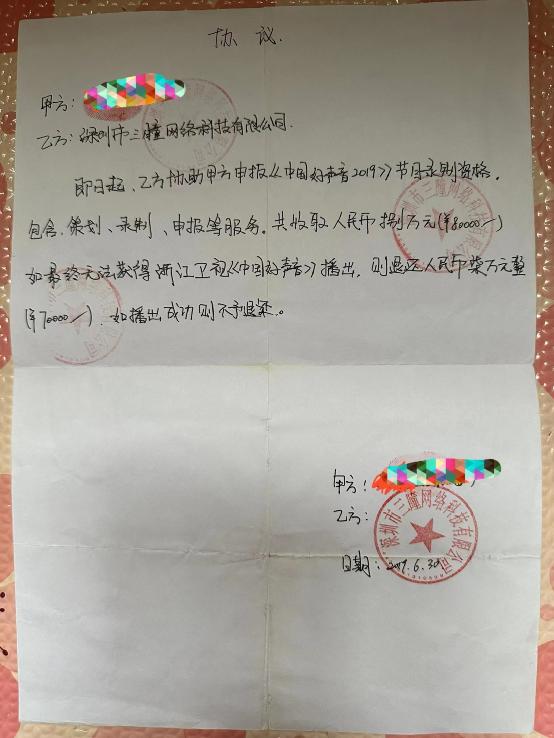 协议.
甲方:
乙方:深圳市三瞳网络科技有限公司.
即日起,乙方协助甲方申报《中国好声音2019》节目录制资格.
包含.策划、录制、申报等服务。共收取人民币捌万元(¥80000—)
如最终无法获得浙江卫视《中国好声音》播出,则退还人民币柒万元整
(¥70000—).如播出成功则不予退还。
甲方:
乙方:
深圳市三瞳网络科技有限公司
日期:2019.6.30